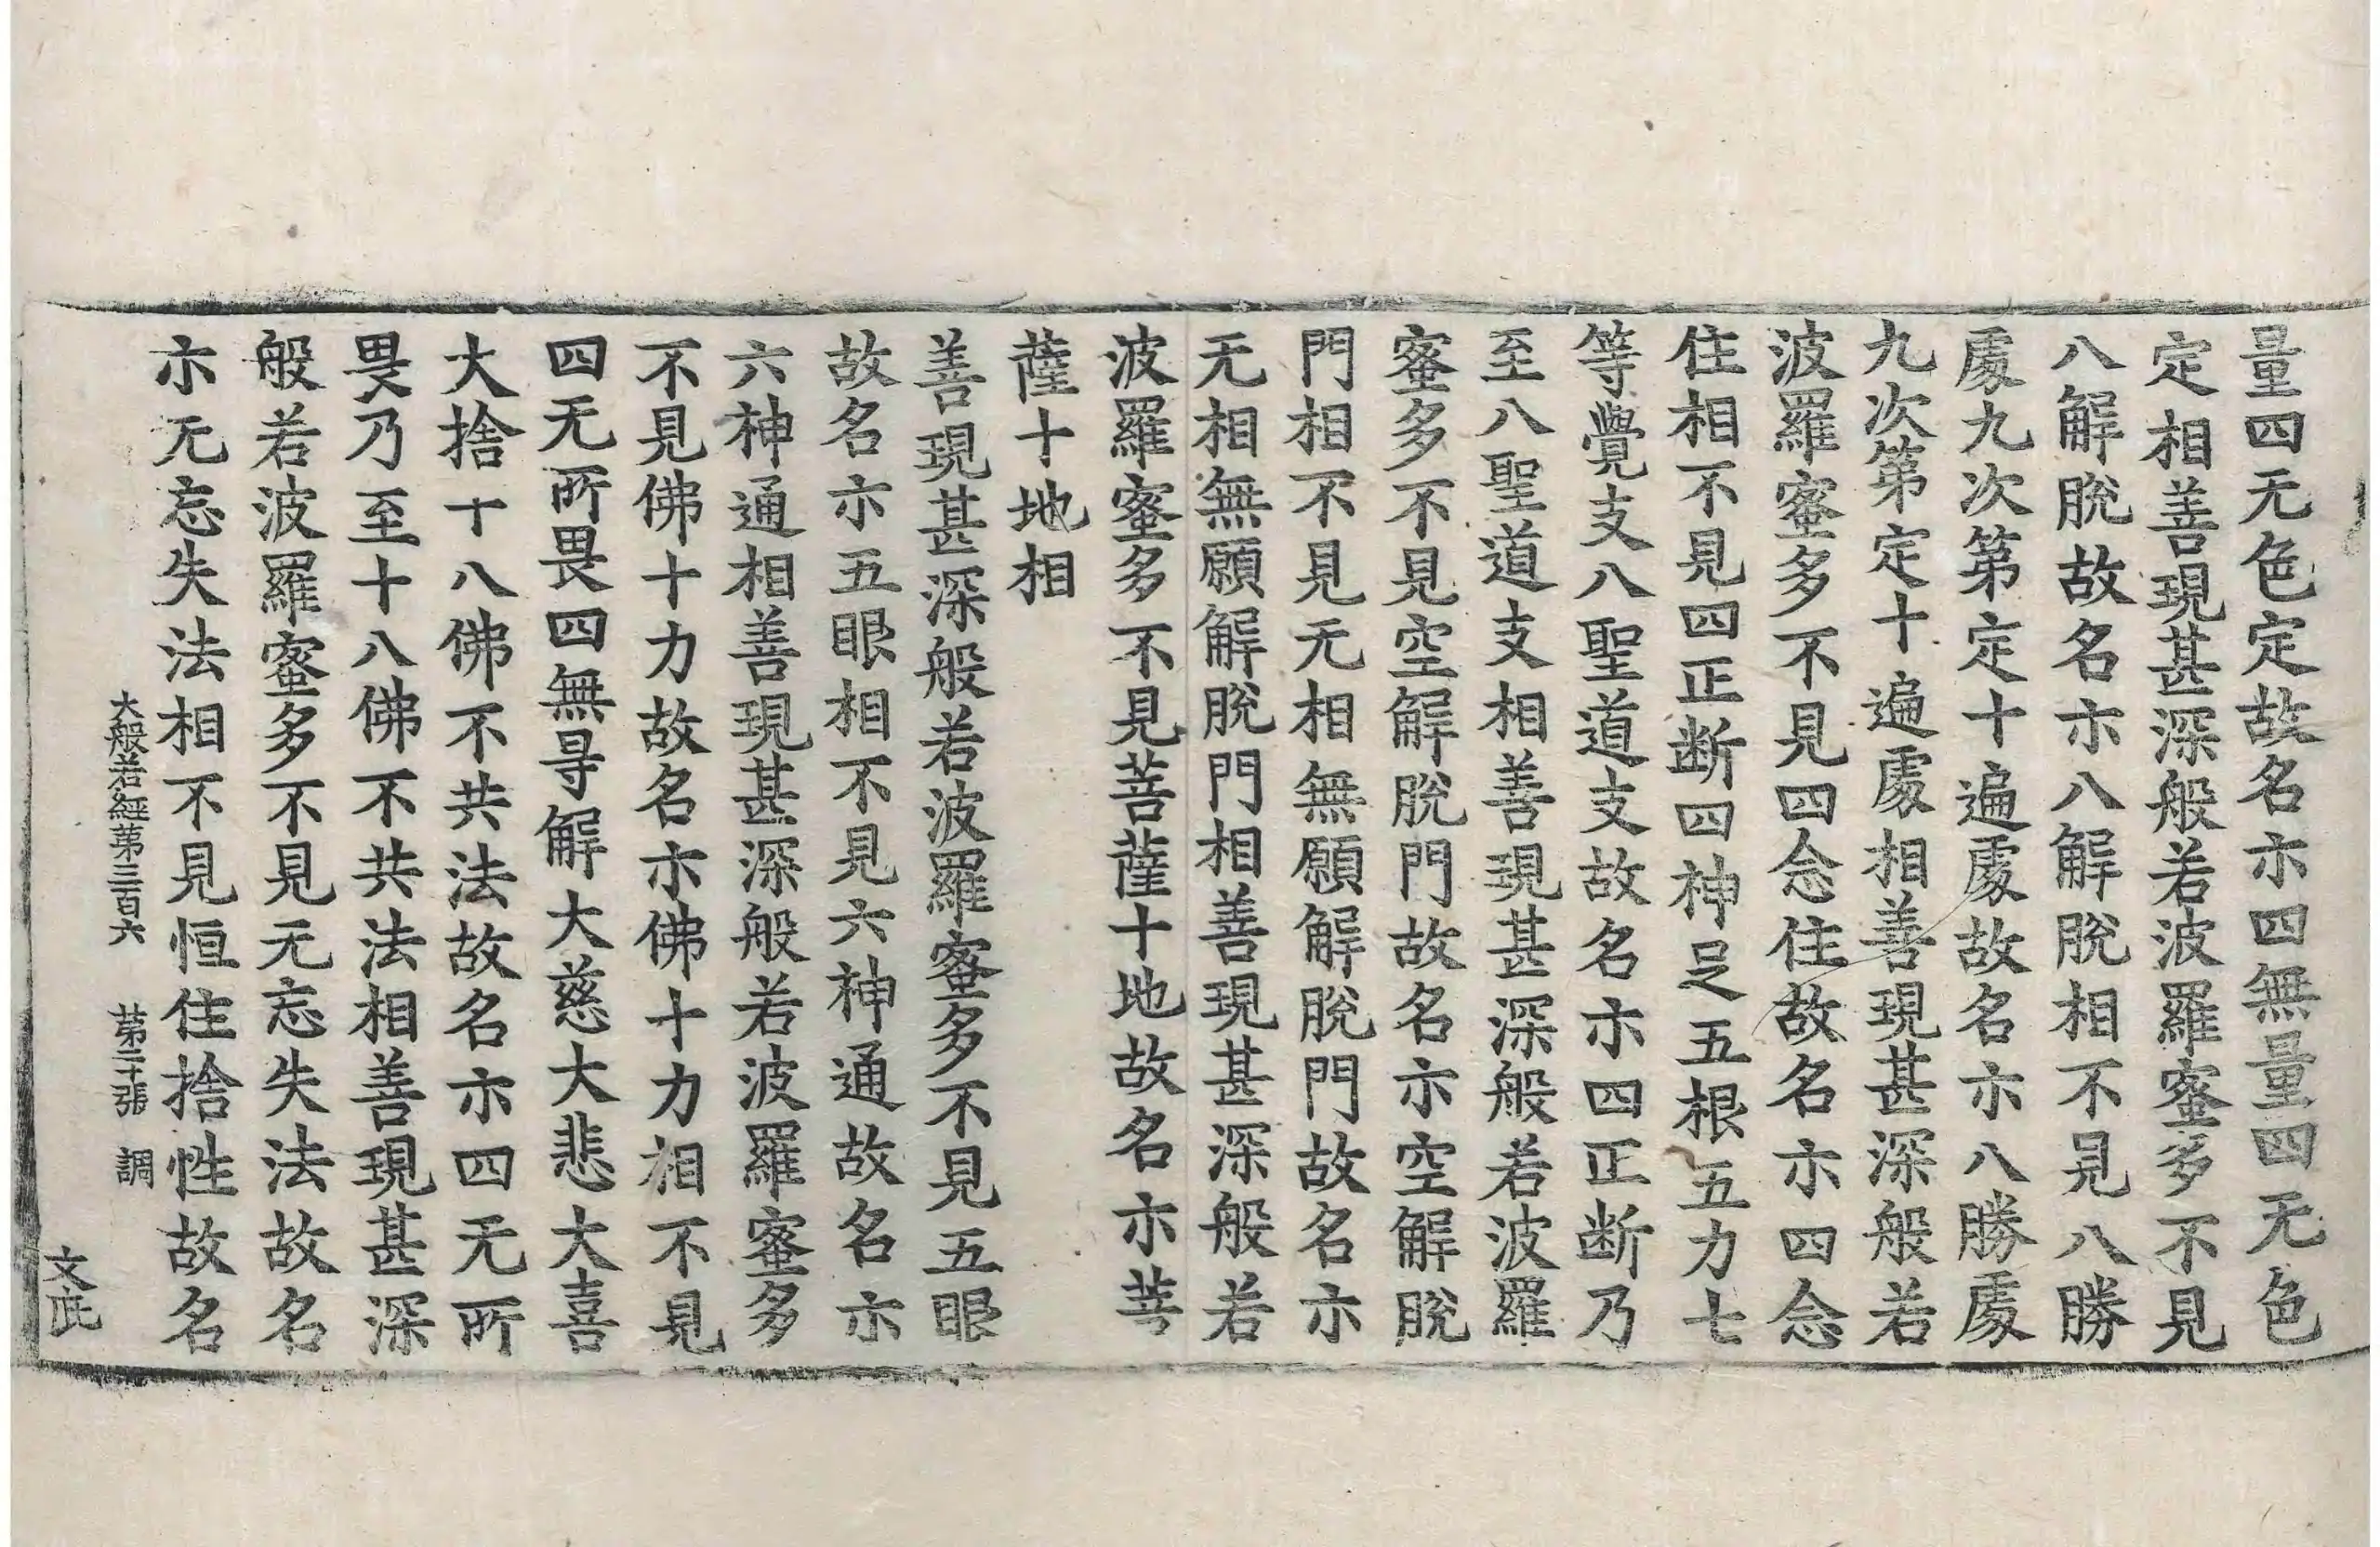 量四无色定故名亦四無量四无色
定相善現甚深般若波羅蜜多不見
八解脫故名亦八解脫相不見八勝
處九次第定十遍處故名亦八勝處
九次第定十遍處相善現甚深般若
波羅蜜多不見四念住故名亦四念
住相不見四正断四神足五根五力七
等覺支八聖道支故名亦四正断乃
至八聖道支相善現甚深般若波羅
蜜多不見空解脫門故名亦空解脫
門相不見无相無願解脫門故名亦
无相無願解脫門相善現甚深般若
波羅蜜多不見菩薩十地故名亦菩
薩十地相
善現甚深般若波羅蜜多不見五眼
故名亦五眼相不見六神通故名亦
六神通相善現甚深般若波羅蜜多
不見佛十力故名亦佛十力相不見
四无所畏四無㝵解大慈大悲大喜
大捨十八佛不共法故名亦四无所
畏乃至十八佛不共法相善現甚深
般若波羅蜜多不見无忘失法故名
亦无忘失法相不見恒住捨性故名
大般若經第三百六 第二十張 調
文庇